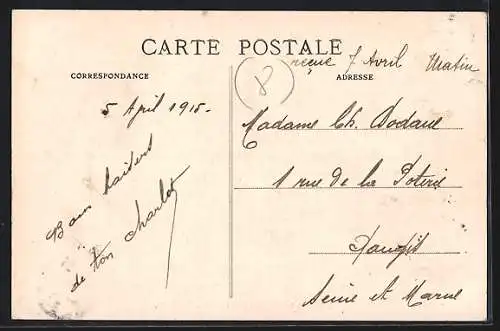 CARTE POSTALE
reçue 7 Avril Matin
CORRESPONDANCE
ADRESSE
8
5 April 1915-
Madame Ch. Dodane
1 rue de la Poterie
Bons baisers
de ton Charlot
Nangis
Seine et Marne